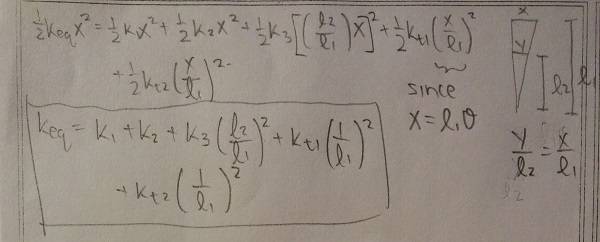 ½ keq x² = ½ k₁x² + ½ k₂x² + ½ k₃ [(l₂/l₁) x]² + ½ kt1 (x/l₁)²
+ ½ kt2 (x/l₁)²
since
x = l₁θ
keq = k₁ + k₂ + k₃ (l₂/l₁)² + kt1 (1/l₁)²
+ kt2 (1/l₁)²
x
y
l₂
l₁
y/l₂ = x/l₁